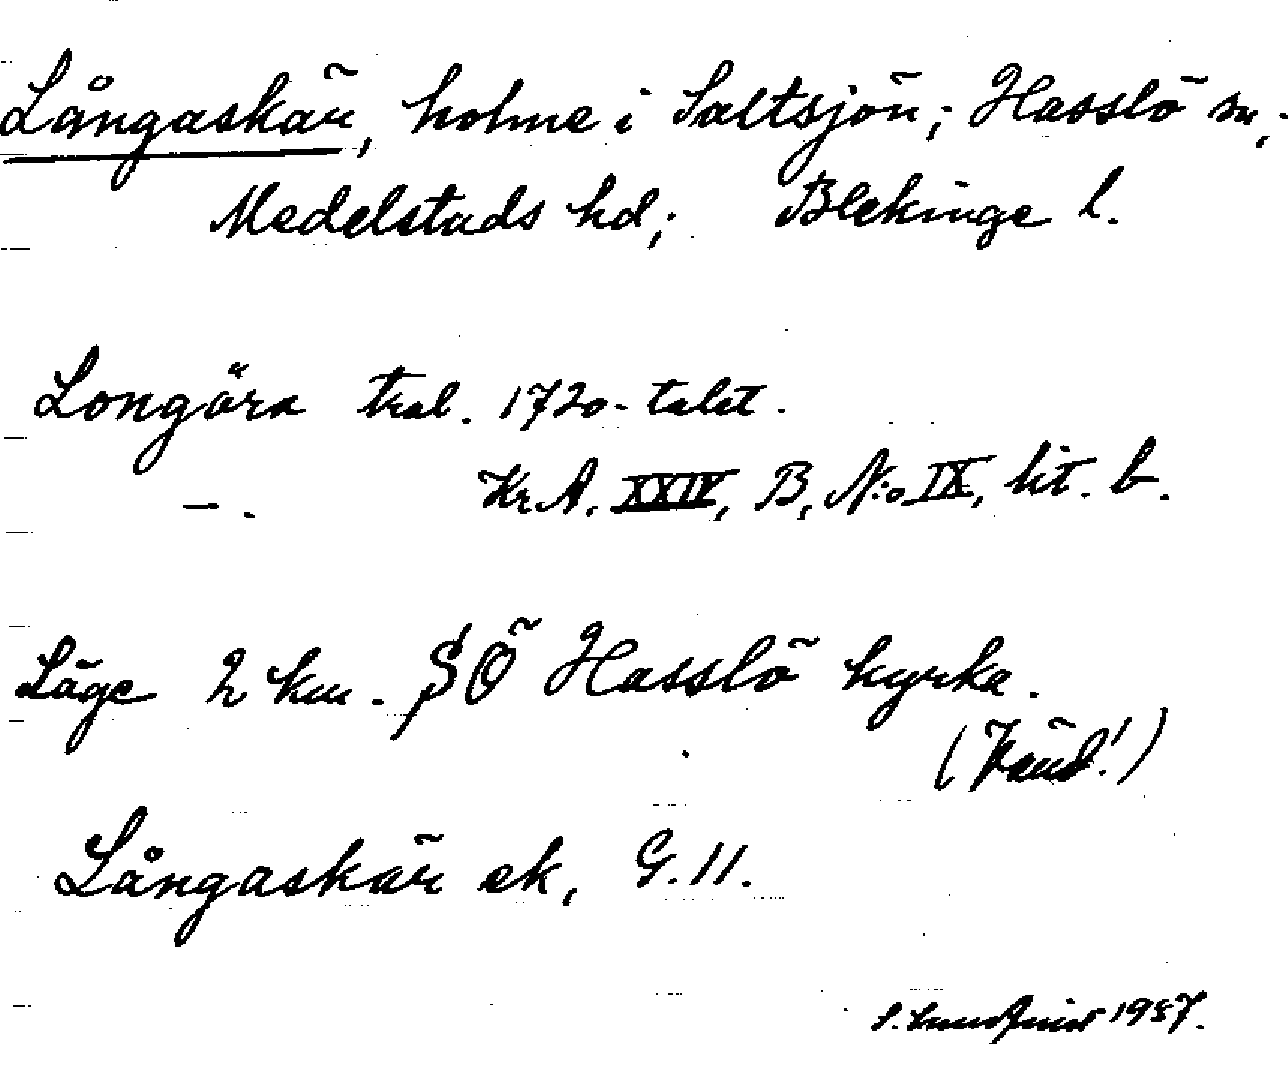 Långaskär, holme i Saltsjön; Hasslö sn,
Medelstads hd; Blekinge l.
Longöra tral. 1720-talet.
—. Kr.A. XXIV, B, N:o IX, lit. b.
Läge 2 km. SÖ Hasslö kyrka.
(Känd!)
Långaskär ek, G.11.
1957.